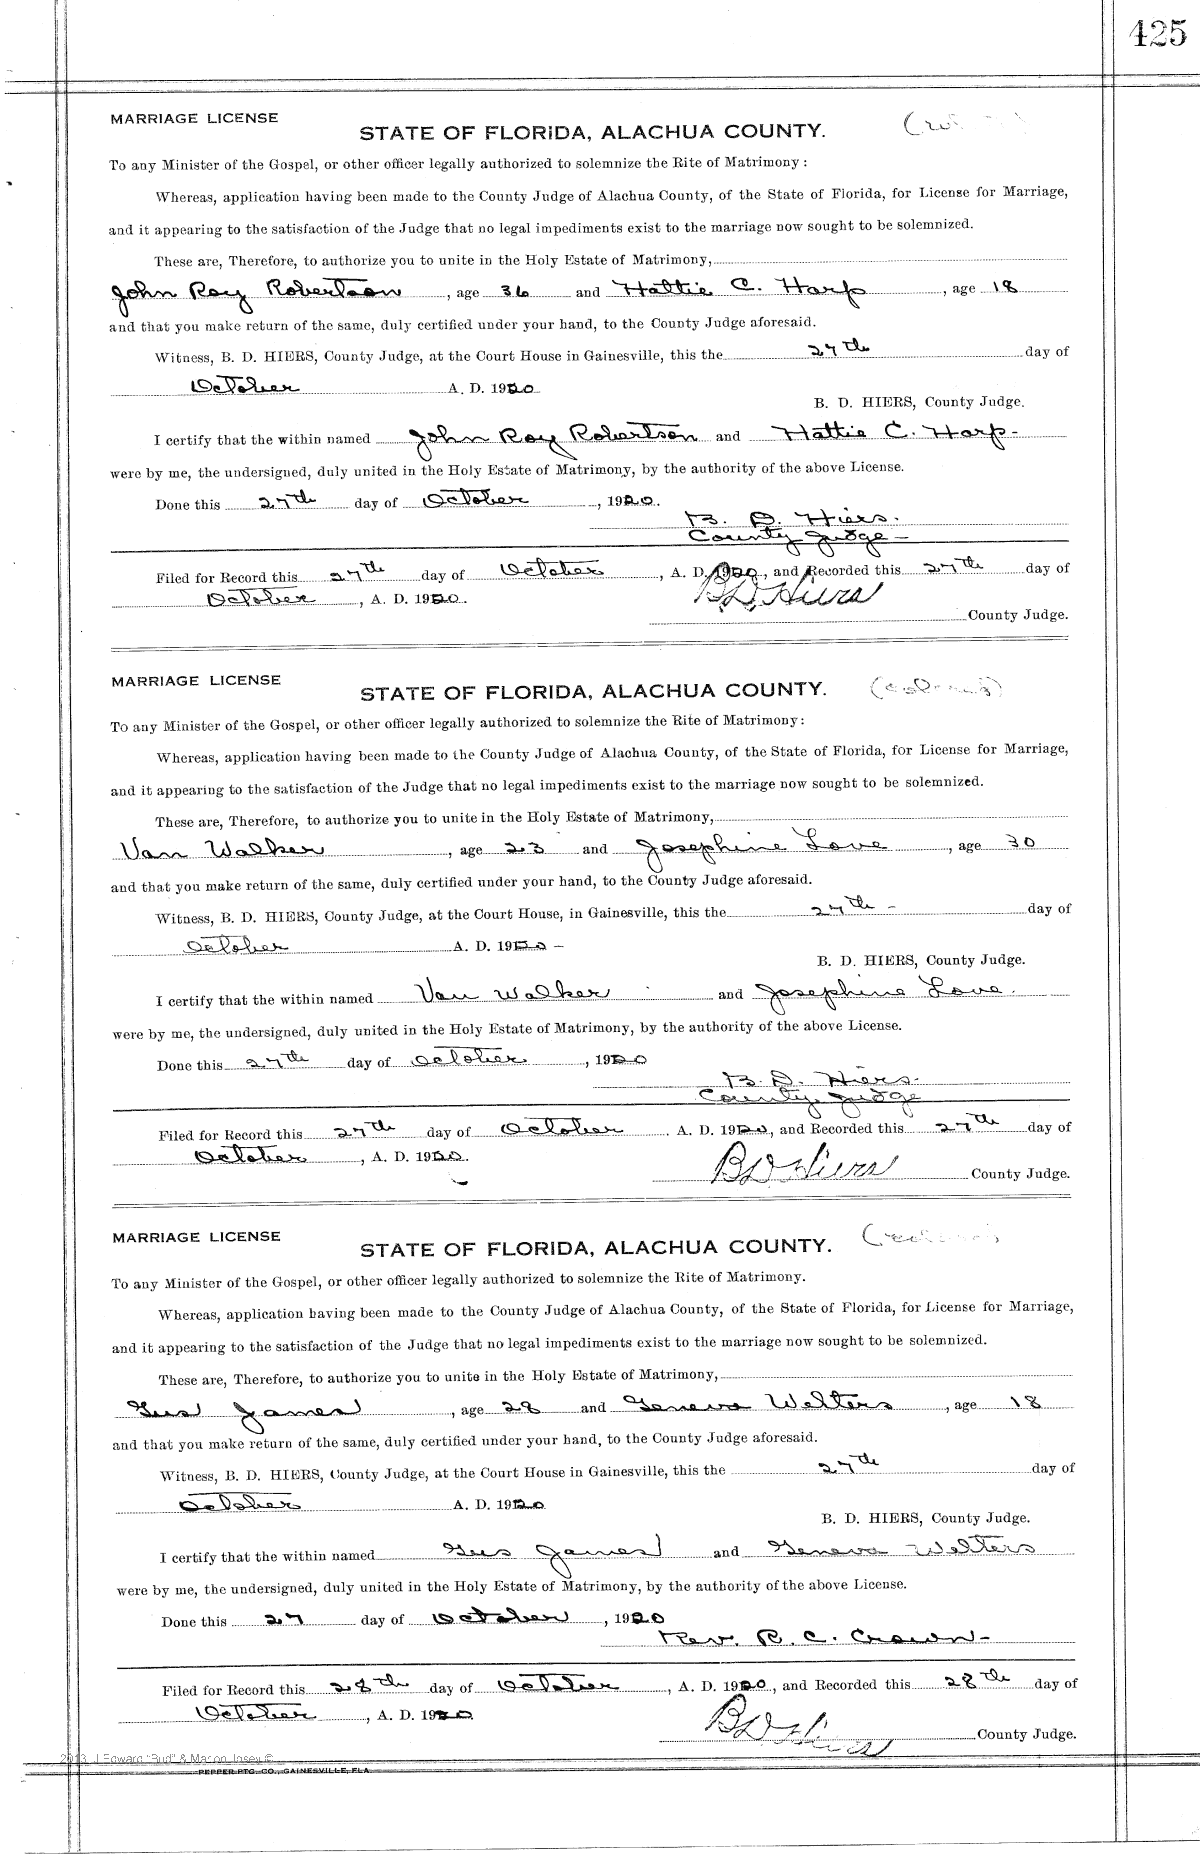 425
MARRIAGE LICENSE
STATE OF FLORIDA, ALACHUA COUNTY.
To any Minister of the Gospel, or other officer legally authorized to solemnize the Rite of Matrimony :
Whereas, application having been made to the County Judge of Alachua County, of the State of Florida, for License for Marriage,
and it appearing to the satisfaction of the Judge that no legal impediments exist to the marriage now sought to be solemnized.
These are, Therefore, to authorize you to unite in the Holy Estate of Matrimony,
John Roy Robertson, age 36 and Hattie C. Harp, age 18
and that you make return of the same, duly certified under your hand, to the County Judge aforesaid.
Witness, B. D. HIERS, County Judge, at the Court House in Gainesville, this the 27th day of
October A. D. 1920
B. D. HIERS, County Judge.
I certify that the within named John Roy Robertson and Hattie C. Harp-
were by me, the undersigned, duly united in the Holy Estate of Matrimony, by the authority of the above License.
Done this 27th day of October, 1920.
B. D. Hiers.
County Judge-
Filed for Record this 27th day of October, A. D. 1920, and Recorded this 27th day of
October, A. D. 1920.
B D Hiers
County Judge.
MARRIAGE LICENSE
STATE OF FLORIDA, ALACHUA COUNTY. (Colored)
To any Minister of the Gospel, or other officer legally authorized to solemnize the Rite of Matrimony:
Whereas, application having been made to the County Judge of Alachua County, of the State of Florida, for License for Marriage,
and it appearing to the satisfaction of the Judge that no legal impediments exist to the marriage now sought to be solemnized.
These are, Therefore, to authorize you to unite in the Holy Estate of Matrimony,
Van Walker, age 23 and Josephine Love, age 30
and that you make return of the same, duly certified under your hand, to the County Judge aforesaid.
Witness, B. D. HIERS, County Judge, at the Court House, in Gainesville, this the 27th - day of
October A. D. 1920 -
B. D. HIERS, County Judge.
I certify that the within named Van Walker and Josephine Love.
were by me, the undersigned, duly united in the Holy Estate of Matrimony, by the authority of the above License.
Done this 27th day of October, 1920
B. D. Hiers.
County Judge
Filed for Record this 27th day of October. A. D. 1920, and Recorded this 27th day of
October, A. D. 1920.
B D Hiers
County Judge.
MARRIAGE LICENSE
STATE OF FLORIDA, ALACHUA COUNTY.
To any Minister of the Gospel, or other officer legally authorized to solemnize the Rite of Matrimony.
Whereas, application having been made to the County Judge of Alachua County, of the State of Florida, for License for Marriage,
and it appearing to the satisfaction of the Judge that no legal impediments exist to the marriage now sought to be solemnized.
These are, Therefore, to authorize you to unite in the Holy Estate of Matrimony,
Gus James, age 28 and Geneva Welters, age 18
and that you make return of the same, duly certified under your hand, to the County Judge aforesaid.
Witness, B. D. HIERS, County Judge, at the Court House in Gainesville, this the 27th day of
October A. D. 1920
B. D. HIERS, County Judge.
I certify that the within named Gus James and Geneva Welters
were by me, the undersigned, duly united in the Holy Estate of Matrimony, by the authority of the above License.
Done this 27 day of October, 1920
Rev. R. C. Crown-
Filed for Record this 28th day of October, A. D. 1920, and Recorded this 28th day of
October, A. D. 1920
B D Hiers
County Judge.
2013 J Edward "Bud" & Marion Josey ©
PEPPER PTG. CO., GAINESVILLE, FLA.